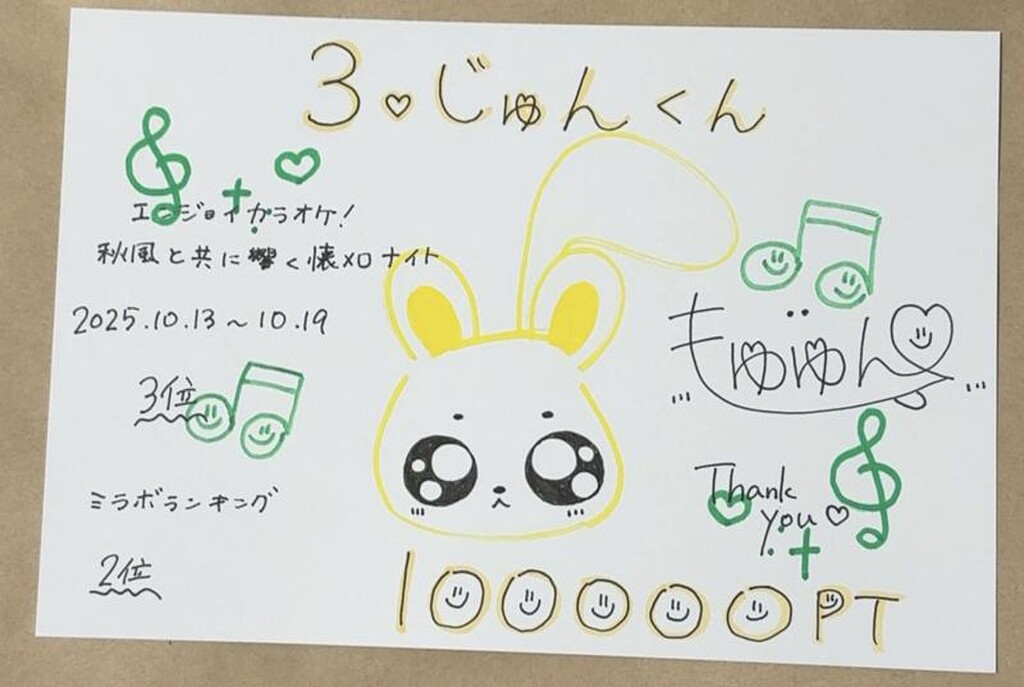 3♡じゅんくん
エンジョイカラオケ!
秋風と共に響く懐メロナイト
2025.10.13～10.19
3位
ミラボランキング
2位
もゅゅん
Thank
you♡
100000PT